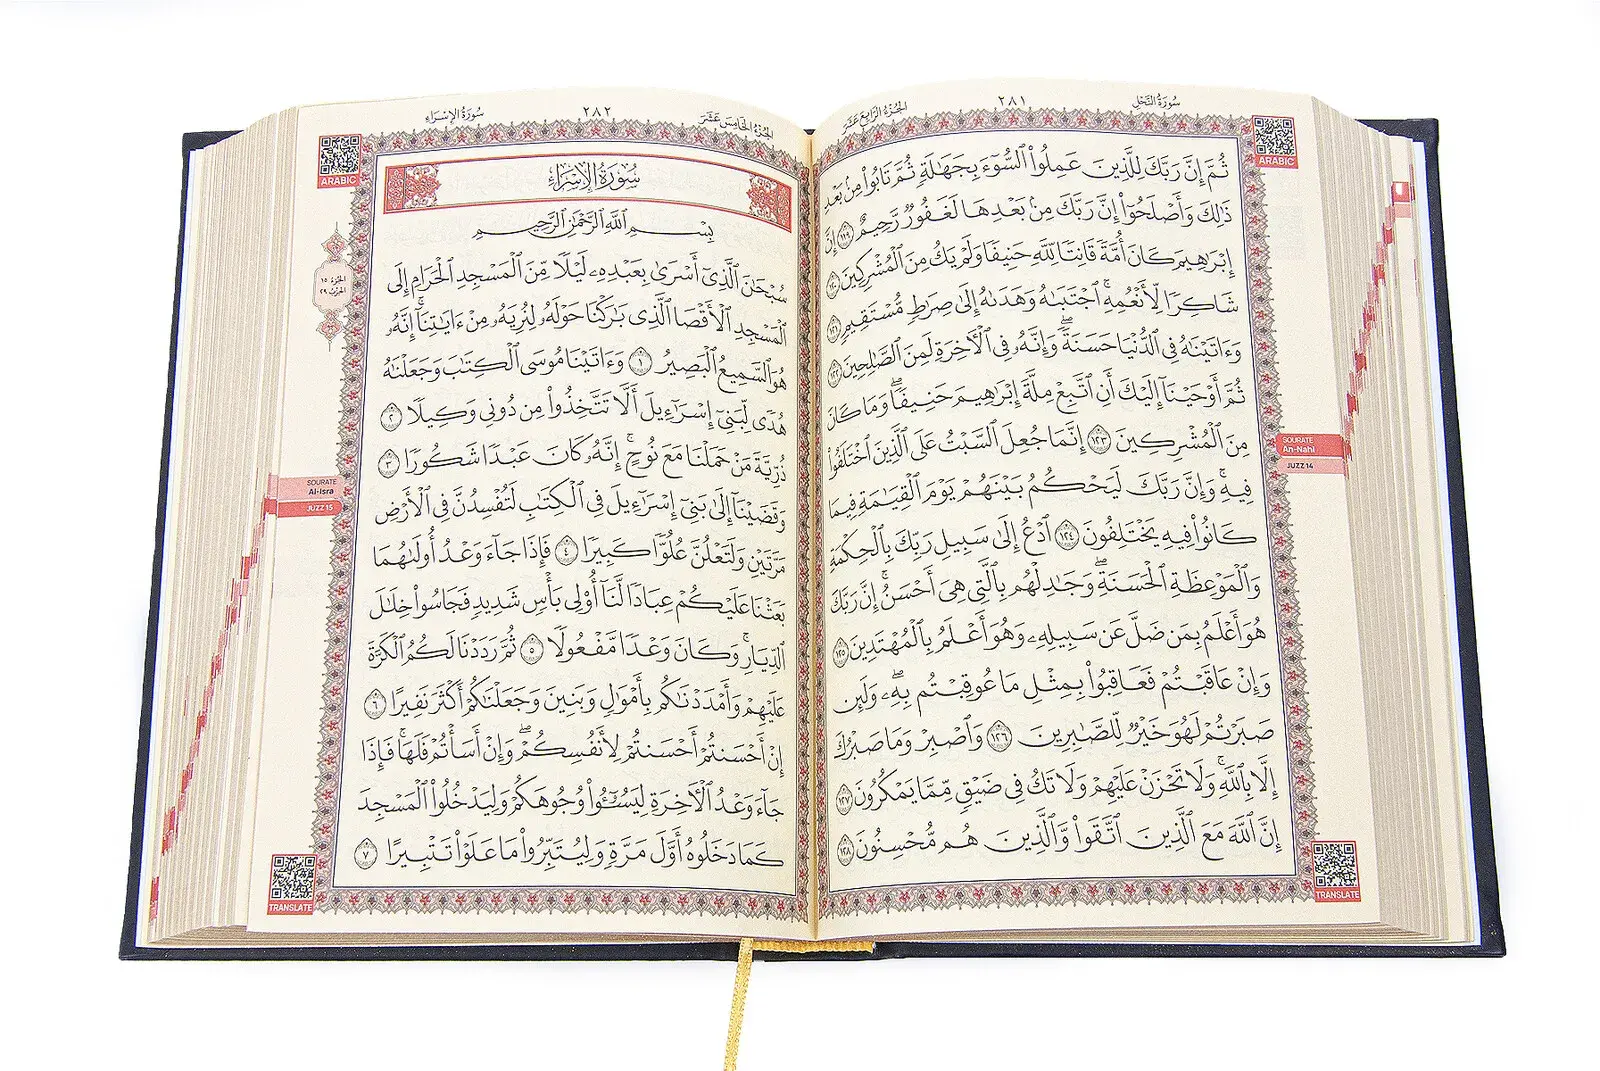 سُورَةُ النَّحْلِ
٢٨١
الجُزْءُ الرَّابِعَ عَشَرَ
ARABIC
ثُمَّ إِنَّ رَبَّكَ لِلَّذِينَ عَمِلُوا۟ ٱلسُّوٓءَ بِجَهَـٰلَةٍ ثُمَّ تَابُوا۟ مِنۢ بَعْدِ
ذَٰلِكَ وَأَصْلَحُوٓا۟ إِنَّ رَبَّكَ مِنۢ بَعْدِهَا لَغَفُورٌ رَّحِيمٌ ١١٩ إِنَّ
إِبْرَٰهِيمَ كَانَ أُمَّةً قَانِتًا لِّلَّهِ حَنِيفًا وَلَمْ يَكُ مِنَ ٱلْمُشْرِكِينَ ١٢٠
شَاكِرًا لِّأَنْعُمِهِ ۚ ٱجْتَبَىٰهُ وَهَدَىٰهُ إِلَىٰ صِرَٰطٍ مُّسْتَقِيمٍ ١٢١
وَءَاتَيْنَـٰهُ فِى ٱلدُّنْيَا حَسَنَةً ۖ وَإِنَّهُۥ فِى ٱلْـَٔاخِرَةِ لَمِنَ ٱلصَّـٰلِحِينَ ١٢٢
ثُمَّ أَوْحَيْنَآ إِلَيْكَ أَنِ ٱتَّبِعْ مِلَّةَ إِبْرَٰهِيمَ حَنِيفًا ۖ وَمَا كَانَ
مِنَ ٱلْمُشْرِكِينَ ١٢٣ إِنَّمَا جُعِلَ ٱلسَّبْتُ عَلَى ٱلَّذِينَ ٱخْتَلَفُوا۟
فِيهِ ۚ وَإِنَّ رَبَّكَ لَيَحْكُمُ بَيْنَهُمْ يَوْمَ ٱلْقِيَـٰمَةِ فِيمَا
كَانُوا۟ فِيهِ يَخْتَلِفُونَ ١٢٤ ٱدْعُ إِلَىٰ سَبِيلِ رَبِّكَ بِٱلْحِكْمَةِ
وَٱلْمَوْعِظَةِ ٱلْحَسَنَةِ ۖ وَجَـٰدِلْهُم بِٱلَّتِى هِىَ أَحْسَنُ ۚ إِنَّ رَبَّكَ
هُوَ أَعْلَمُ بِمَن ضَلَّ عَن سَبِيلِهِۦ وَهُوَ أَعْلَمُ بِٱلْمُهْتَدِينَ ١٢٥
وَإِنْ عَاقَبْتُمْ فَعَاقِبُوا۟ بِمِثْلِ مَا عُوقِبْتُم بِهِۦ ۖ وَلَئِن
صَبَرْتُمْ لَهُوَ خَيْرٌ لِّلصَّـٰبِرِينَ ١٢٦ وَٱصْبِرْ وَمَا صَبْرُكَ
إِلَّا بِٱللَّهِ ۚ وَلَا تَحْزَنْ عَلَيْهِمْ وَلَا تَكُ فِى ضَيْقٍ مِّمَّا يَمْكُرُونَ ١٢٧
إِنَّ ٱللَّهَ مَعَ ٱلَّذِينَ ٱتَّقَوا۟ وَّٱلَّذِينَ هُم مُّحْسِنُونَ ١٢٨
SOURATE
An-Nahl
JUZZ 14
TRANSLATE
الجُزْءُ الخَامِسَ عَشَرَ
٢٨٢
سُورَةُ الإِسْرَاءِ
ARABIC
سُورَةُ الإِسْرَاءِ
بِسْمِ ٱللَّهِ ٱلرَّحْمَـٰنِ ٱلرَّحِيمِ
سُبْحَـٰنَ ٱلَّذِىٓ أَسْرَىٰ بِعَبْدِهِۦ لَيْلًا مِّنَ ٱلْمَسْجِدِ ٱلْحَرَامِ إِلَى
ٱلْمَسْجِدِ ٱلْأَقْصَا ٱلَّذِى بَـٰرَكْنَا حَوْلَهُۥ لِنُرِيَهُۥ مِنْ ءَايَـٰتِنَآ ۚ إِنَّهُۥ
هُوَ ٱلسَّمِيعُ ٱلْبَصِيرُ ١ وَءَاتَيْنَا مُوسَى ٱلْكِتَـٰبَ وَجَعَلْنَـٰهُ
هُدًى لِّبَنِىٓ إِسْرَٰٓءِيلَ أَلَّا تَتَّخِذُوا۟ مِن دُونِى وَكِيلًا ٢
ذُرِّيَّةَ مَنْ حَمَلْنَا مَعَ نُوحٍ ۚ إِنَّهُۥ كَانَ عَبْدًا شَكُورًا ٣
وَقَضَيْنَآ إِلَىٰ بَنِىٓ إِسْرَٰٓءِيلَ فِى ٱلْكِتَـٰبِ لَتُفْسِدُنَّ فِى ٱلْأَرْضِ
مَرَّتَيْنِ وَلَتَعْلُنَّ عُلُوًّا كَبِيرًا ٤ فَإِذَا جَآءَ وَعْدُ أُولَىٰهُمَا
بَعَثْنَا عَلَيْكُمْ عِبَادًا لَّنَآ أُو۟لِى بَأْسٍ شَدِيدٍ فَجَاسُوا۟ خِلَـٰلَ
ٱلدِّيَارِ ۚ وَكَانَ وَعْدًا مَّفْعُولًا ٥ ثُمَّ رَدَدْنَا لَكُمُ ٱلْكَرَّةَ
عَلَيْهِمْ وَأَمْدَدْنَـٰكُم بِأَمْوَٰلٍ وَبَنِينَ وَجَعَلْنَـٰكُمْ أَكْثَرَ نَفِيرًا ٦
إِنْ أَحْسَنتُمْ أَحْسَنتُمْ لِأَنفُسِكُمْ ۖ وَإِنْ أَسَأْتُمْ فَلَهَا ۚ فَإِذَا
جَآءَ وَعْدُ ٱلْـَٔاخِرَةِ لِيَسُـۥٓـُٔوا۟ وُجُوهَكُمْ وَلِيَدْخُلُوا۟ ٱلْمَسْجِدَ
كَمَا دَخَلُوهُ أَوَّلَ مَرَّةٍ وَلِيُتَبِّرُوا۟ مَا عَلَوْا۟ تَتْبِيرًا ٧
الجزء ١٥
الحزب ٢٩
SOURATE
Al-Isra
JUZZ 15
TRANSLATE